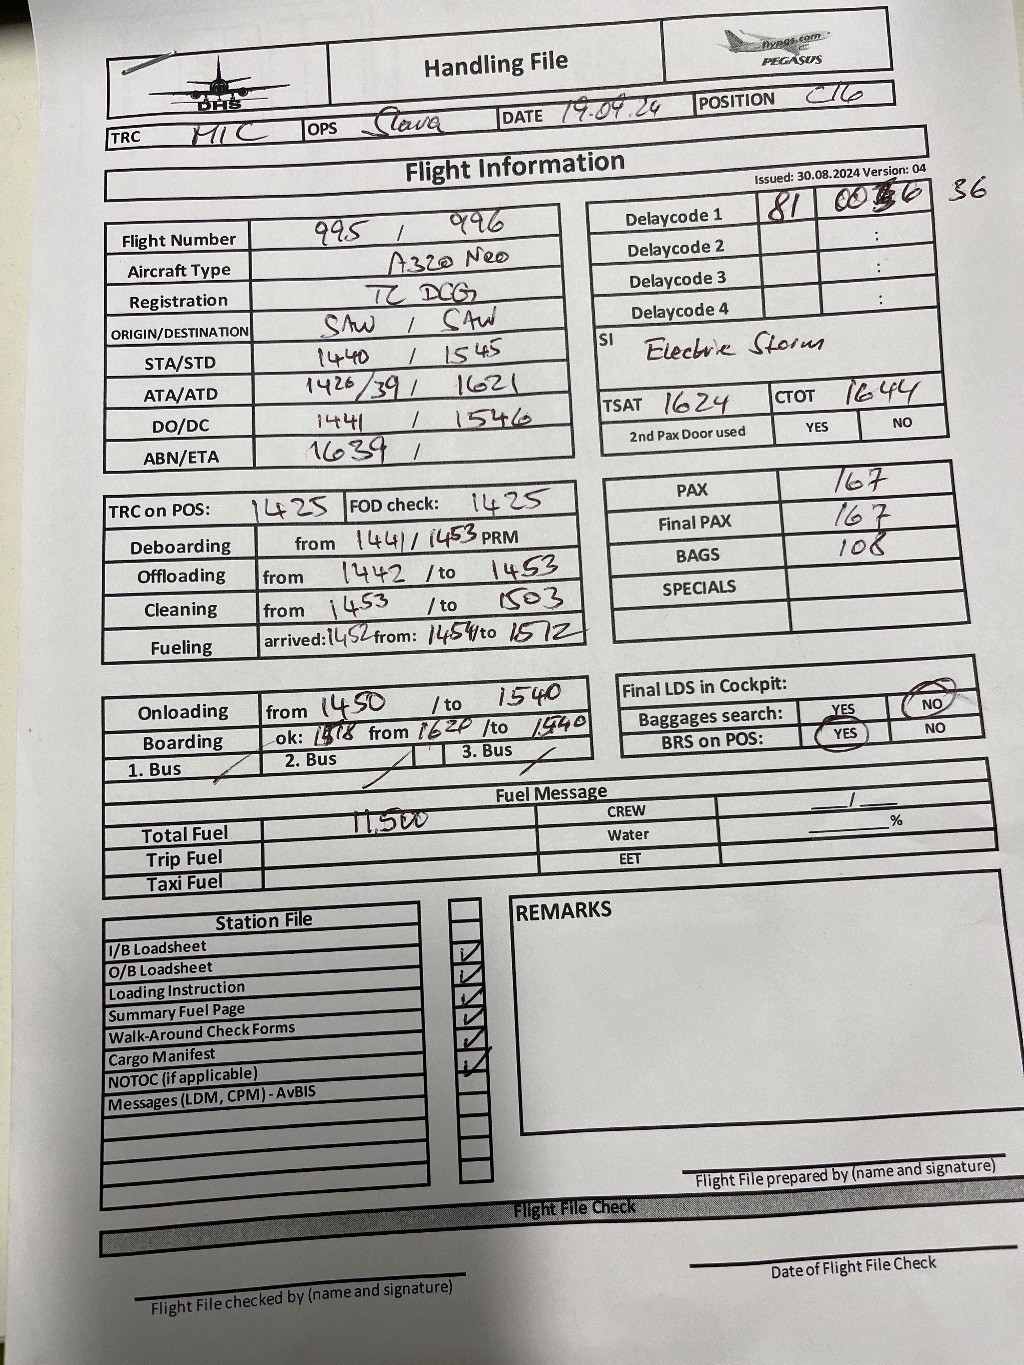 DHS
Handling File
flypgs.com
PEGASUS
TRC MIC OPS Slava DATE 19.09.24 POSITION C16
Flight Information
Issued: 30.08.2024 Version: 04
Flight Number 995 / 996
Aircraft Type A320 Neo
Registration TC DCG
ORIGIN/DESTINATION SAW / SAW
STA/STD 1440 / 1545
ATA/ATD 1426/39 / 1621
DO/DC 1441 / 1546
ABN/ETA 1639 /
Delaycode 1 81 00 36 36
Delaycode 2 :
Delaycode 3 :
Delaycode 4 :
SI Electric Storm
TSAT 1624 CTOT 1644
2nd Pax Door used YES NO
TRC on POS: 1425 FOD check: 1425
Deboarding from 1441 / 1453 PRM
Offloading from 1442 / to 1453
Cleaning from 1453 / to 1503
Fueling arrived: 1452 from: 1454 /to 1512
PAX 167
Final PAX 167
BAGS 108
SPECIALS
Onloading from 1450 / to 1540
Boarding ok: 1518 from 1620 /to 1540
1. Bus 2. Bus 3. Bus
Final LDS in Cockpit:
Baggages search: YES NO
BRS on POS: YES NO
Fuel Message
Total Fuel 11,500 CREW ___/___
Trip Fuel Water ______%
Taxi Fuel EET
Station File
I/B Loadsheet
O/B Loadsheet
Loading Instruction
Summary Fuel Page
Walk-Around Check Forms
Cargo Manifest
NOTOC (if applicable)
Messages (LDM, CPM) - AvBIS
REMARKS
Flight File prepared by (name and signature)
Flight File Check
Flight File checked by (name and signature)
Date of Flight File Check